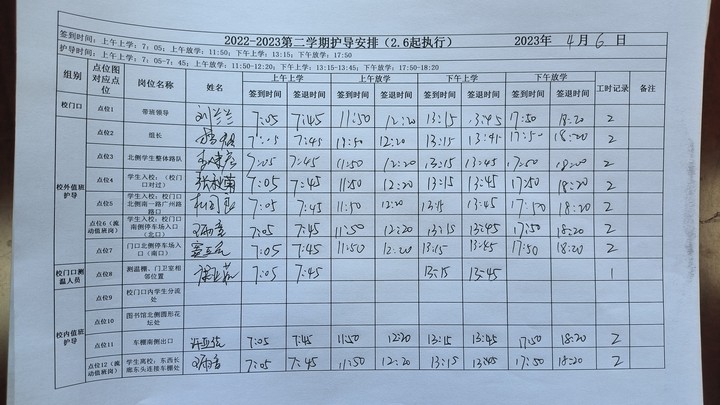 2022-2023第二学期护导安排（2.6起执行） 2023年 4月 6日
签到时间：上午上学：7：05；上午放学：11:50；下午上学：13:15；下午放学：17:50
护导时间：上午上学：7：05-7：45；上午放学：11:50-12:20；下午上学：13:15-13:45；下午放学：17:50-18:20
组别 点位图对应点位 岗位名称 姓名 上午上学 上午放学 下午上学 下午放学 工时记录 备注
签到时间 签退时间 签到时间 签退时间 签到时间 签退时间 签到时间 签退时间
校门口 点位1 带班领导 刘兰兰 7:05 7:45 11:50 12:20 13:15 13:45 17:50 18:20 2
校外值班护导 点位2 组长 7:05 7:45 11:50 12:20 13:15 13:45 17:50 18:20 2
点位3 北侧学生整体路队 7:05 7:45 11:50 12:20 13:15 13:45 17:50 18:20 2
点位4 学生入校：（校门口对过） 7:05 7:45 11:50 12:20 13:15 13:45 17:50 18:20 2
点位5 学生入校：校门口北侧南一路广州路路口 7:05 7:45 11:50 12:20 13:15 13:45 17:50 18:20 2
点位6（流动值班岗） 学生入校：校门口南侧停车场入口（北口） 7:05 7:45 11:50 12:20 13:15 13:45 17:50 18:20 2
点位7 门口北侧停车场入口（南口） 7:05 7:45 11:50 12:20 13:15 13:45 17:50 18:20 2
校门口测温人员 点位8 测温棚、门卫室相邻位置 7:05 7:45 13:15 13:45 1
校内值班护导 点位9 校门口内学生分流处
点位10 图书馆北侧圆形花坛处
点位11 车棚南侧出口 7:05 7:45 11:50 12:20 13:15 13:45 17:50 18:20 2
点位12（流动值班岗） 学生离校：东西长廊东头连接车棚处 7:05 7:45 11:50 12:20 13:15 13:45 17:50 18:20 2